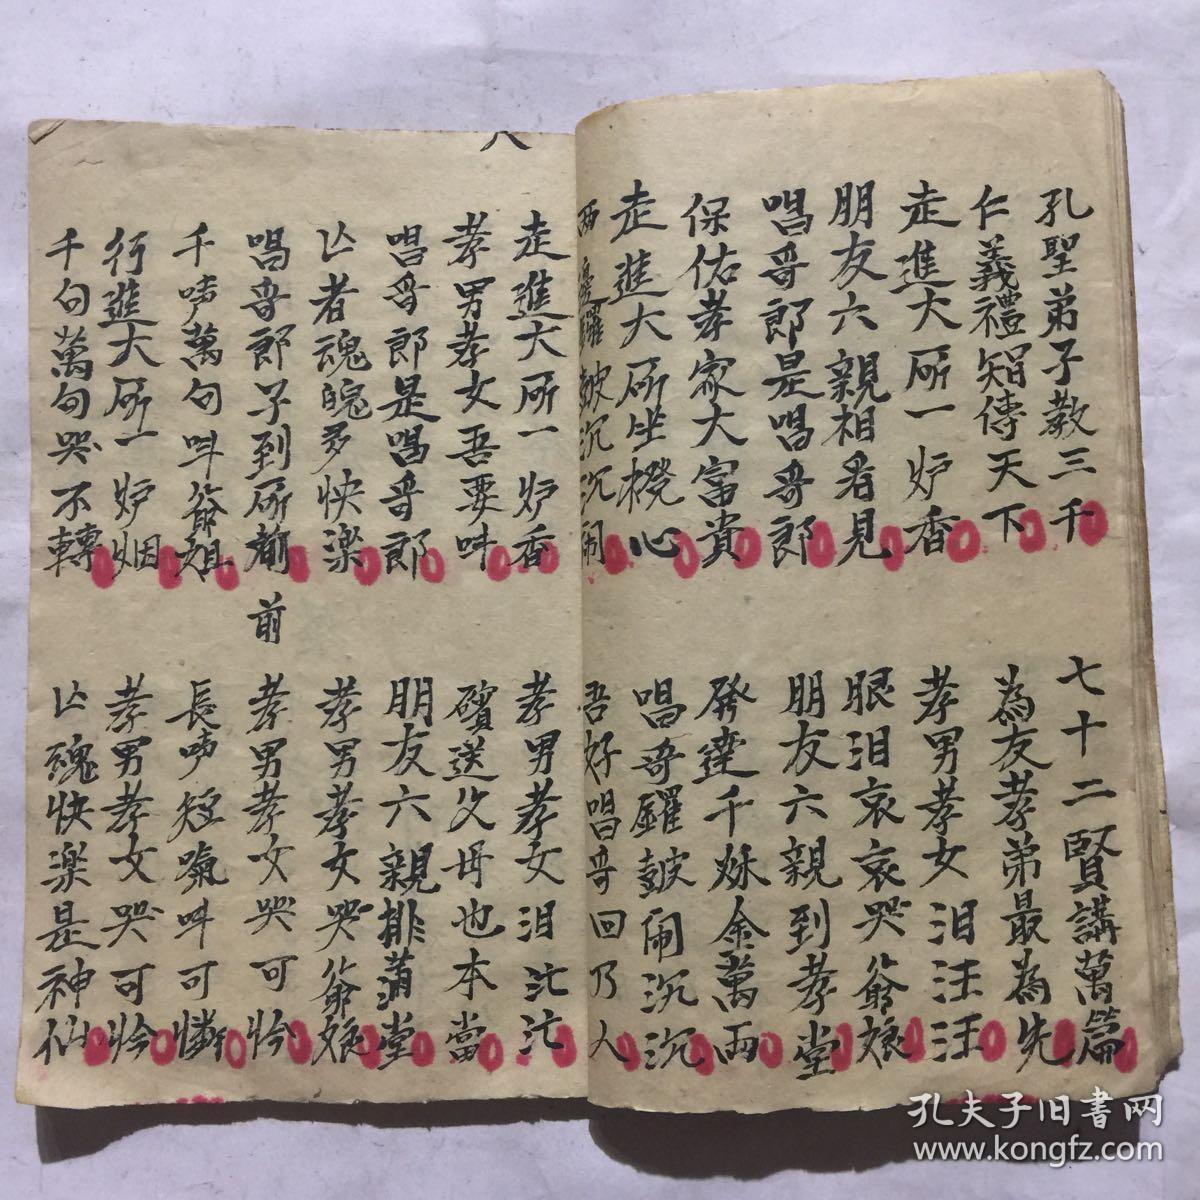 孔聖弟子教三千
七十二賢講萬篇
仁義禮智傳天下
為友孝弟最為先
走進大所一炉香
孝男孝女泪汪汪
朋友六親相看見
眼泪哀哀哭爺娘
唱哥郎是唱哥郎
朋友六親到孝堂
保佑孝家大富貴
發達千烁金萬両
走進大所坐櫈心
唱哥鑼皷闹沉沉
西邊鑼皷沉沉闹
吾好唱哥回乃人
八
走進大所一炉香
孝男孝女泪汒汒
孝男孝女吾要呌
殯送父母也本當
唱哥郎是唱哥郎
朋友六親排满堂
亾者魂魄多快楽
孝男孝女哭爺娘
唱哥郎子到所前
前
孝男孝女哭可怜
千声萬句呌爺姐
長声短氣呌可憐
行進大所一炉烟
孝男孝女哭可怜
千句萬句哭不轉
亾魂快楽是神仙
孔夫子旧書网
www.kongfz.com